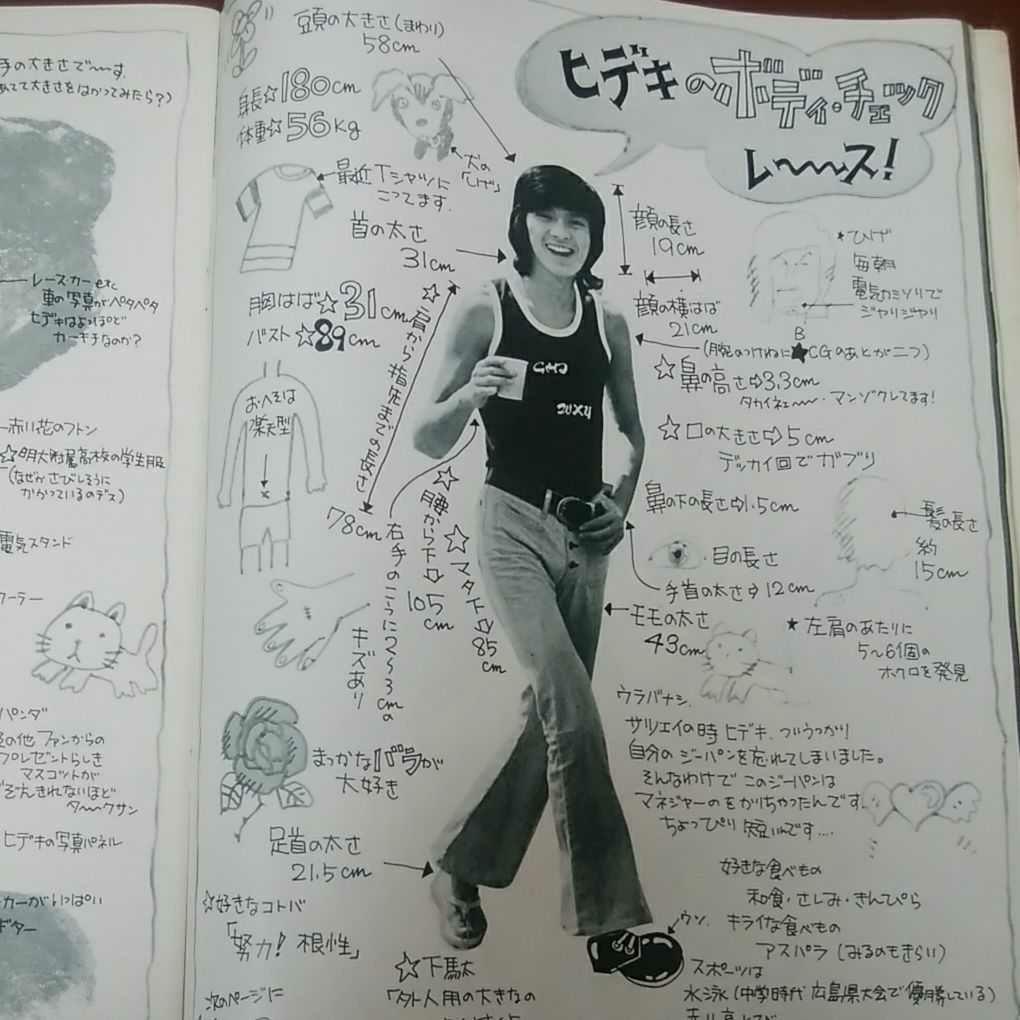 手の大きさで〜〜す。
あてて大きさをはかってみたら?)
レース・カー etc
車の写真がペタペタ
ヒデキはよっぽど
カーキチなのか?
赤い花のフトン
☆明大附属高校の学生服
(なぜかさびしそうに
かかっているのデス)
電気スタンド
クーラー
パンダ
その他ファンからの
プレゼントらしき
マスコットが
ぞんきれないほど
タ〜〜クサン
ヒデキの写真パネル
カーがいっぱい
ギター
ヒデキのボディ・チェック
レ〜〜〜ス!
頭の大きさ(まわり)
58cm
身長☆180cm
体重☆56kg
犬の
「ひげ」
最近Tシャツに
こってます。
首の太さ
31cm
胸はば☆31cm
バスト☆89cm
おへそは
楽天型
☆肩から指先までの長さ
78cm
右手のこうに2〜3cmの
キズあり
☆腰から下⇨105cm
☆マタ下⇨85cm
まっかなバラが
大好き
足首の太さ
21.5cm
☆好きなコトバ
「努力! 根性」
次のページに
☆下駄
「外人用の大きなの
顔の長さ
19cm
顔の横はば
21cm
★ひげ
毎朝
電気カミソリで
ジャリジャリ
(腕のつけねに★BCGのあとが二つ)
☆鼻の高さ⇨3.3cm
タカイネェ〜〜・マンゾクしてます!
☆口の大きさ⇨5cm
デッカイ口でガブリ
鼻の下の長さ⇨1.5cm
目の長さ
手首の太さ⇨12cm
髪の長さ
約
15cm
モモの太さ
43cm
★左肩のあたりに
5〜6個の
ホクロを発見
ウラバナシ
サツエイの時 ヒデキ、ついうっかり
自分のジーパンを忘れてしまいました。
そんなわけで このジーパンは
マネジャーのをかりちゃったんです
ちょっぴり短いんです....
好きな食べもの
和食・さしみ・きんぴら
ウソ、キライな食べもの
アスパラ(みるのもきらい)
スポーツは
水泳(中学時代 広島県大会で優勝している)